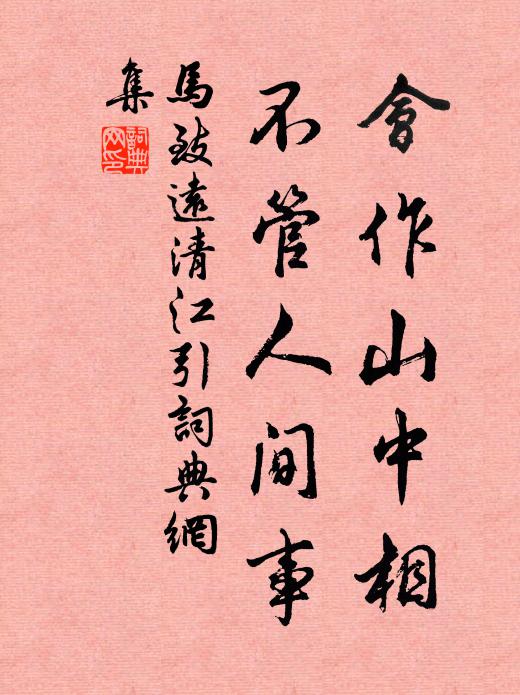 會作山中相
不管人間事
馬致遠清江引詞典網
集
詞典
网印